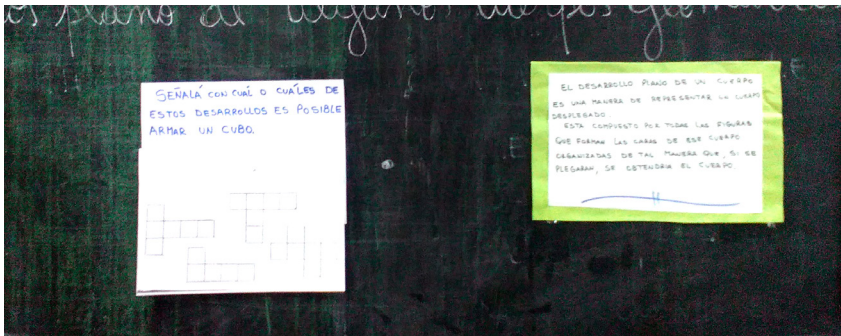 plano de algunos cuerpos geométricos
SEÑALÁ CON CUÁL O CUÁLES DE
ESTOS DESARROLLOS ES POSIBLE
ARMAR UN CUBO.
EL DESARROLLO PLANO DE UN CUERPO
ES UNA MANERA DE REPRESENTAR UN CUERPO
DESPLEGADO.
ESTÁ COMPUESTO POR TODAS LAS FIGURAS
QUE FORMAN LAS CARAS DE ESE CUERPO
ORGANIZADAS DE TAL MANERA QUE, SI SE
PLEGARAN, SE OBTENDRIA EL CUERPO.